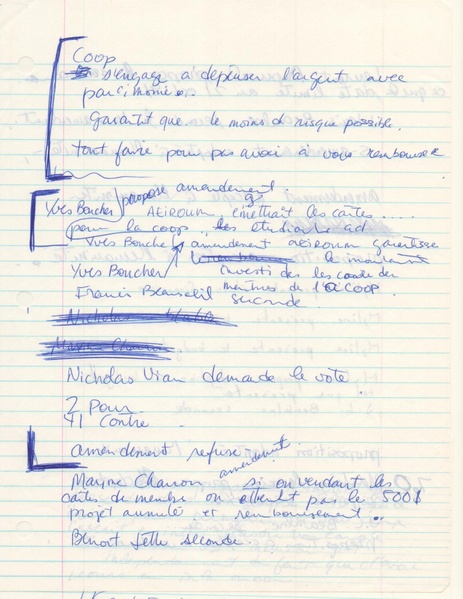 Coop
s'engage à dépenser l'argent avec
parcimonie.
Garantit que le moins de risque possible.
tout faire pour pas avoir à vous rembourser
Yves Boucher propose amendement
AEIROUM émettrait les cartes ....
pour la coop .. les étudiants
Yves Boucher amendement AEIROUM garantisse
le montant
Yves Boucher investi des les cartes des
Francis membres de l'a COOP.
seconde
Nicholas
Maxime Charron
Nicholas Vian demande le vote
2 Pour
41 Contre
amendement refusé
amendement
Maxime Charron si on vendant les
cartes de membre on atteint pas les 500$
projet annulé et remboursement ..
Benoit seconde